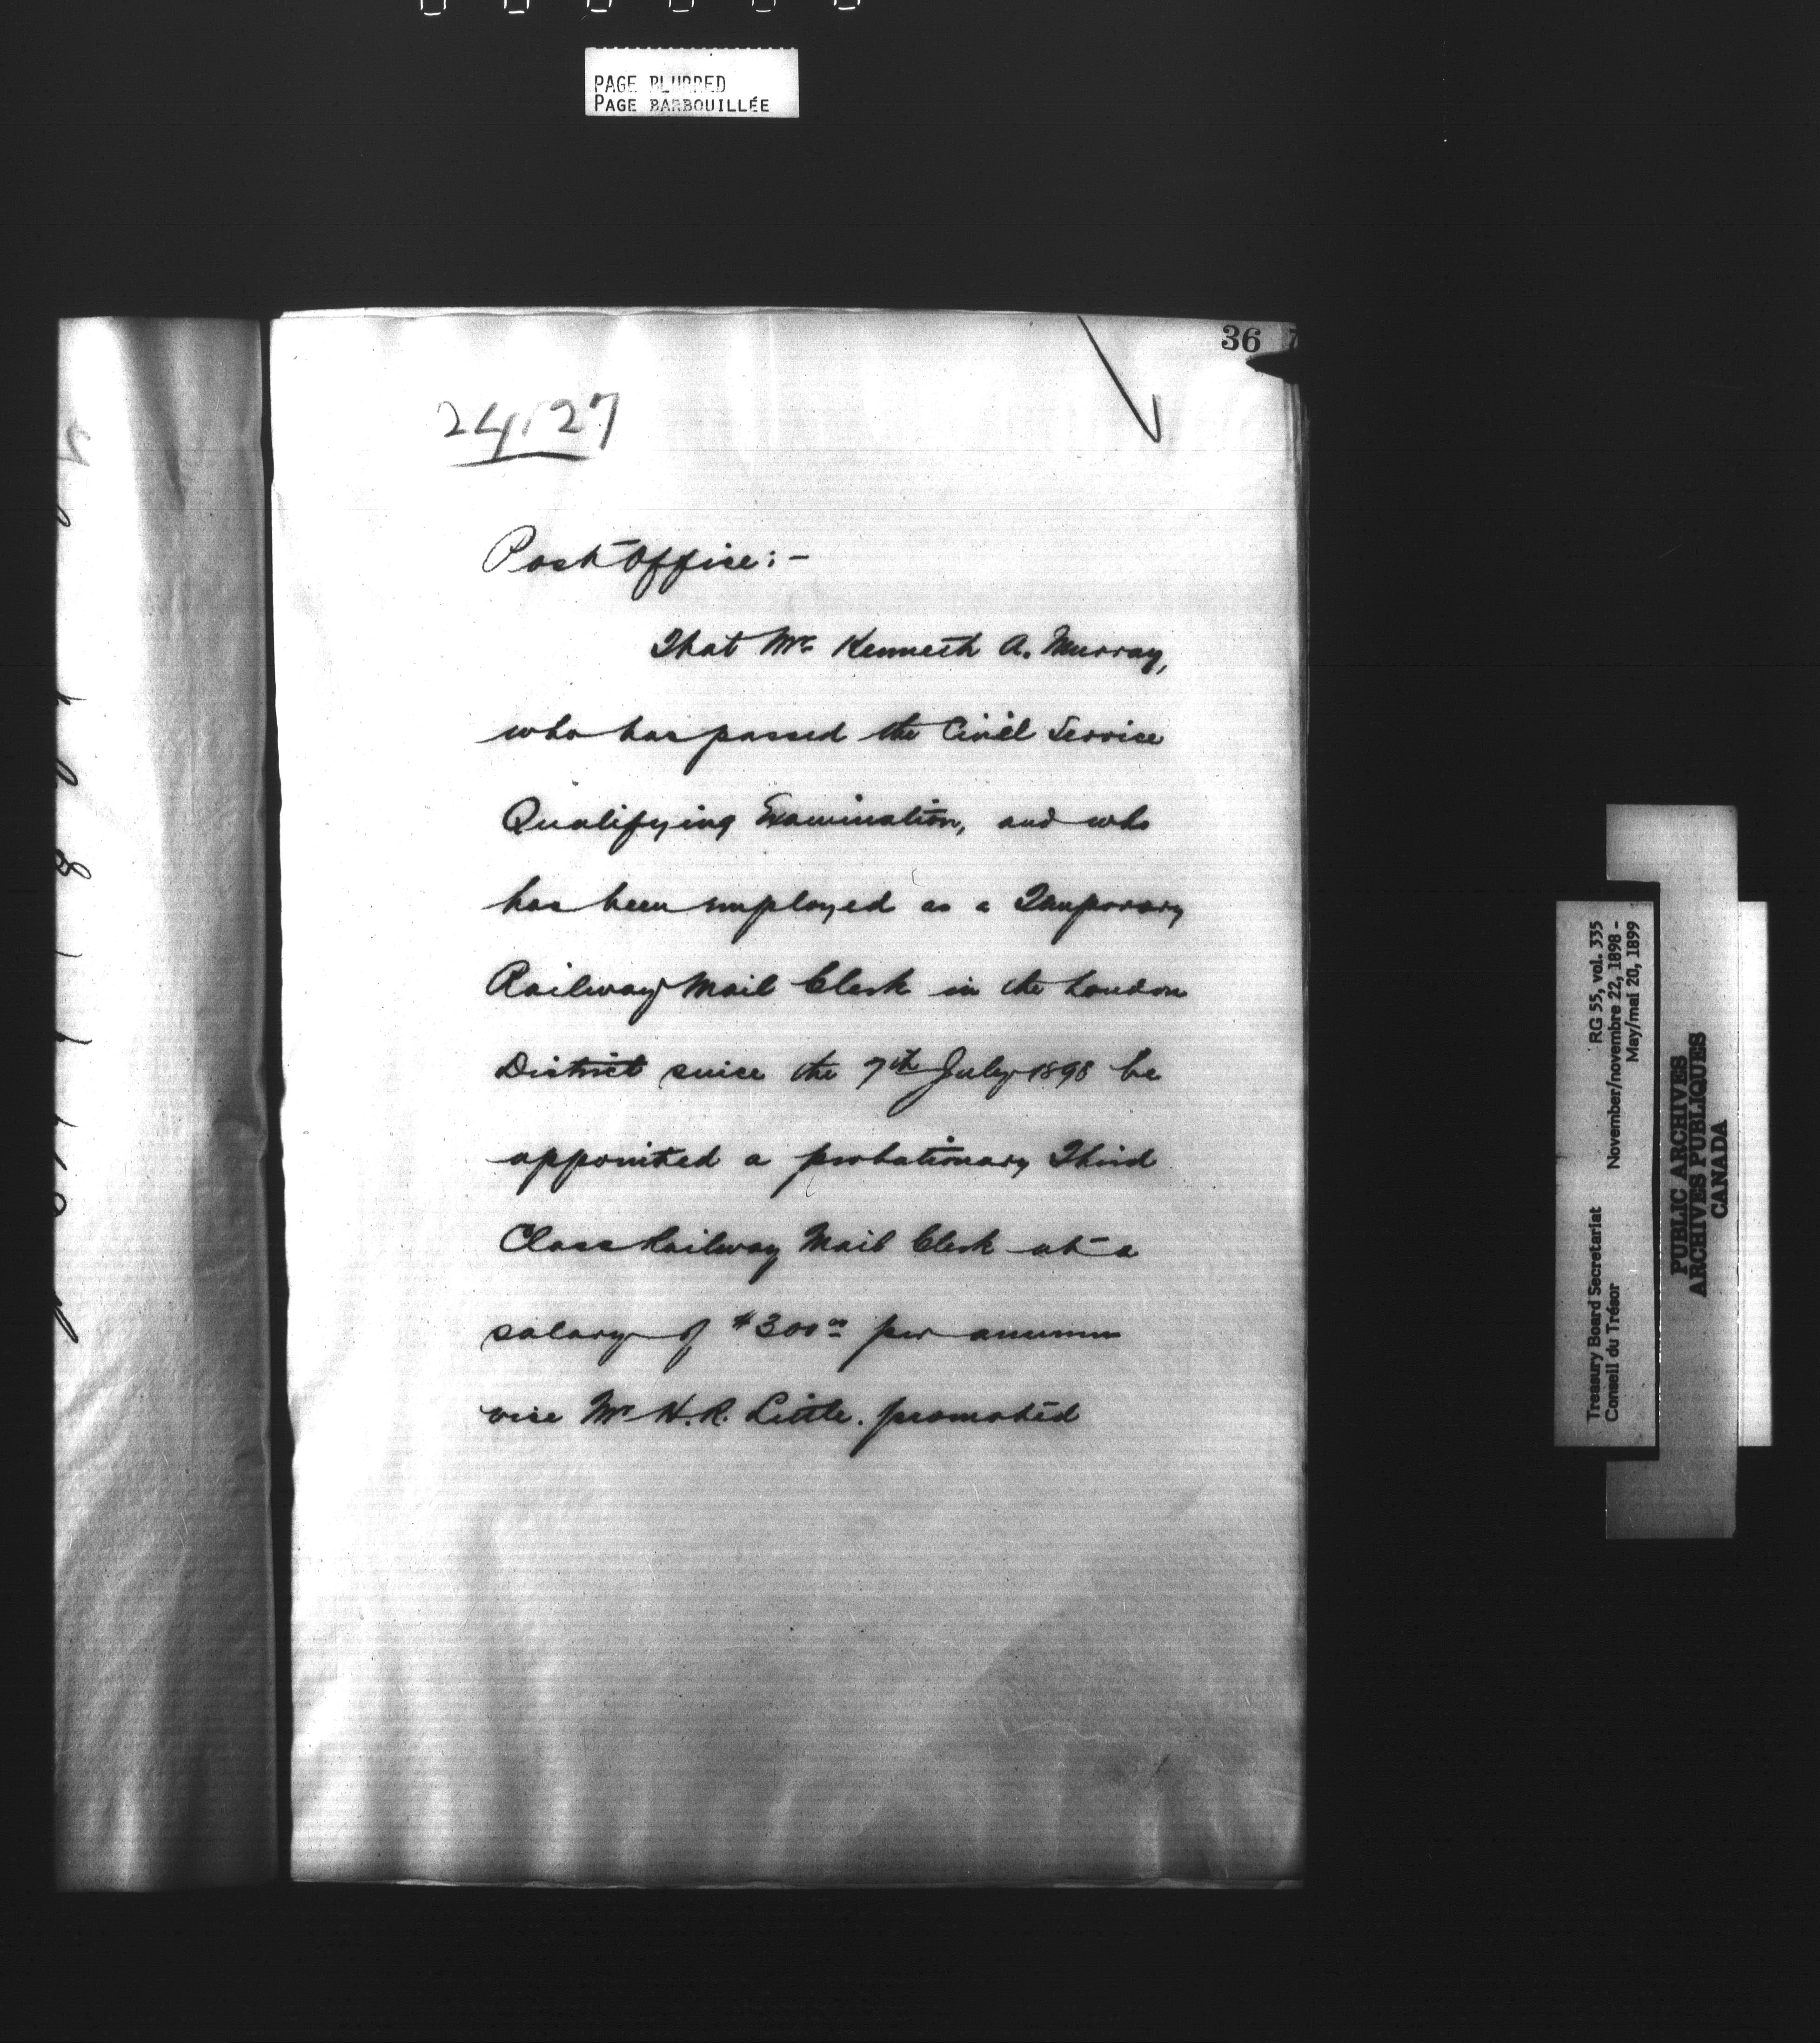 PAGE BLURRED
PAGE BARBOUILLÉE
36 7
24127
Post Office:-
That Mr Kenneth A. Murray,
who has passed the Civil Service
Qualifying Examination, and who
has been employed as a Temporary
Railway Mail Clerk in the London
District since the 7th July 1898 be
appointed a probationary Third
Class Railway Mail Clerk at a
salary of $300.00 per annum
vice Mr H.R. Little. promoted
Treasury Board Secretariat RG 55, vol. 335
Conseil du Trésor November/novembre 22, 1898 -
May/mai 20, 1899
PUBLIC ARCHIVES
ARCHIVES PUBLIQUES
CANADA